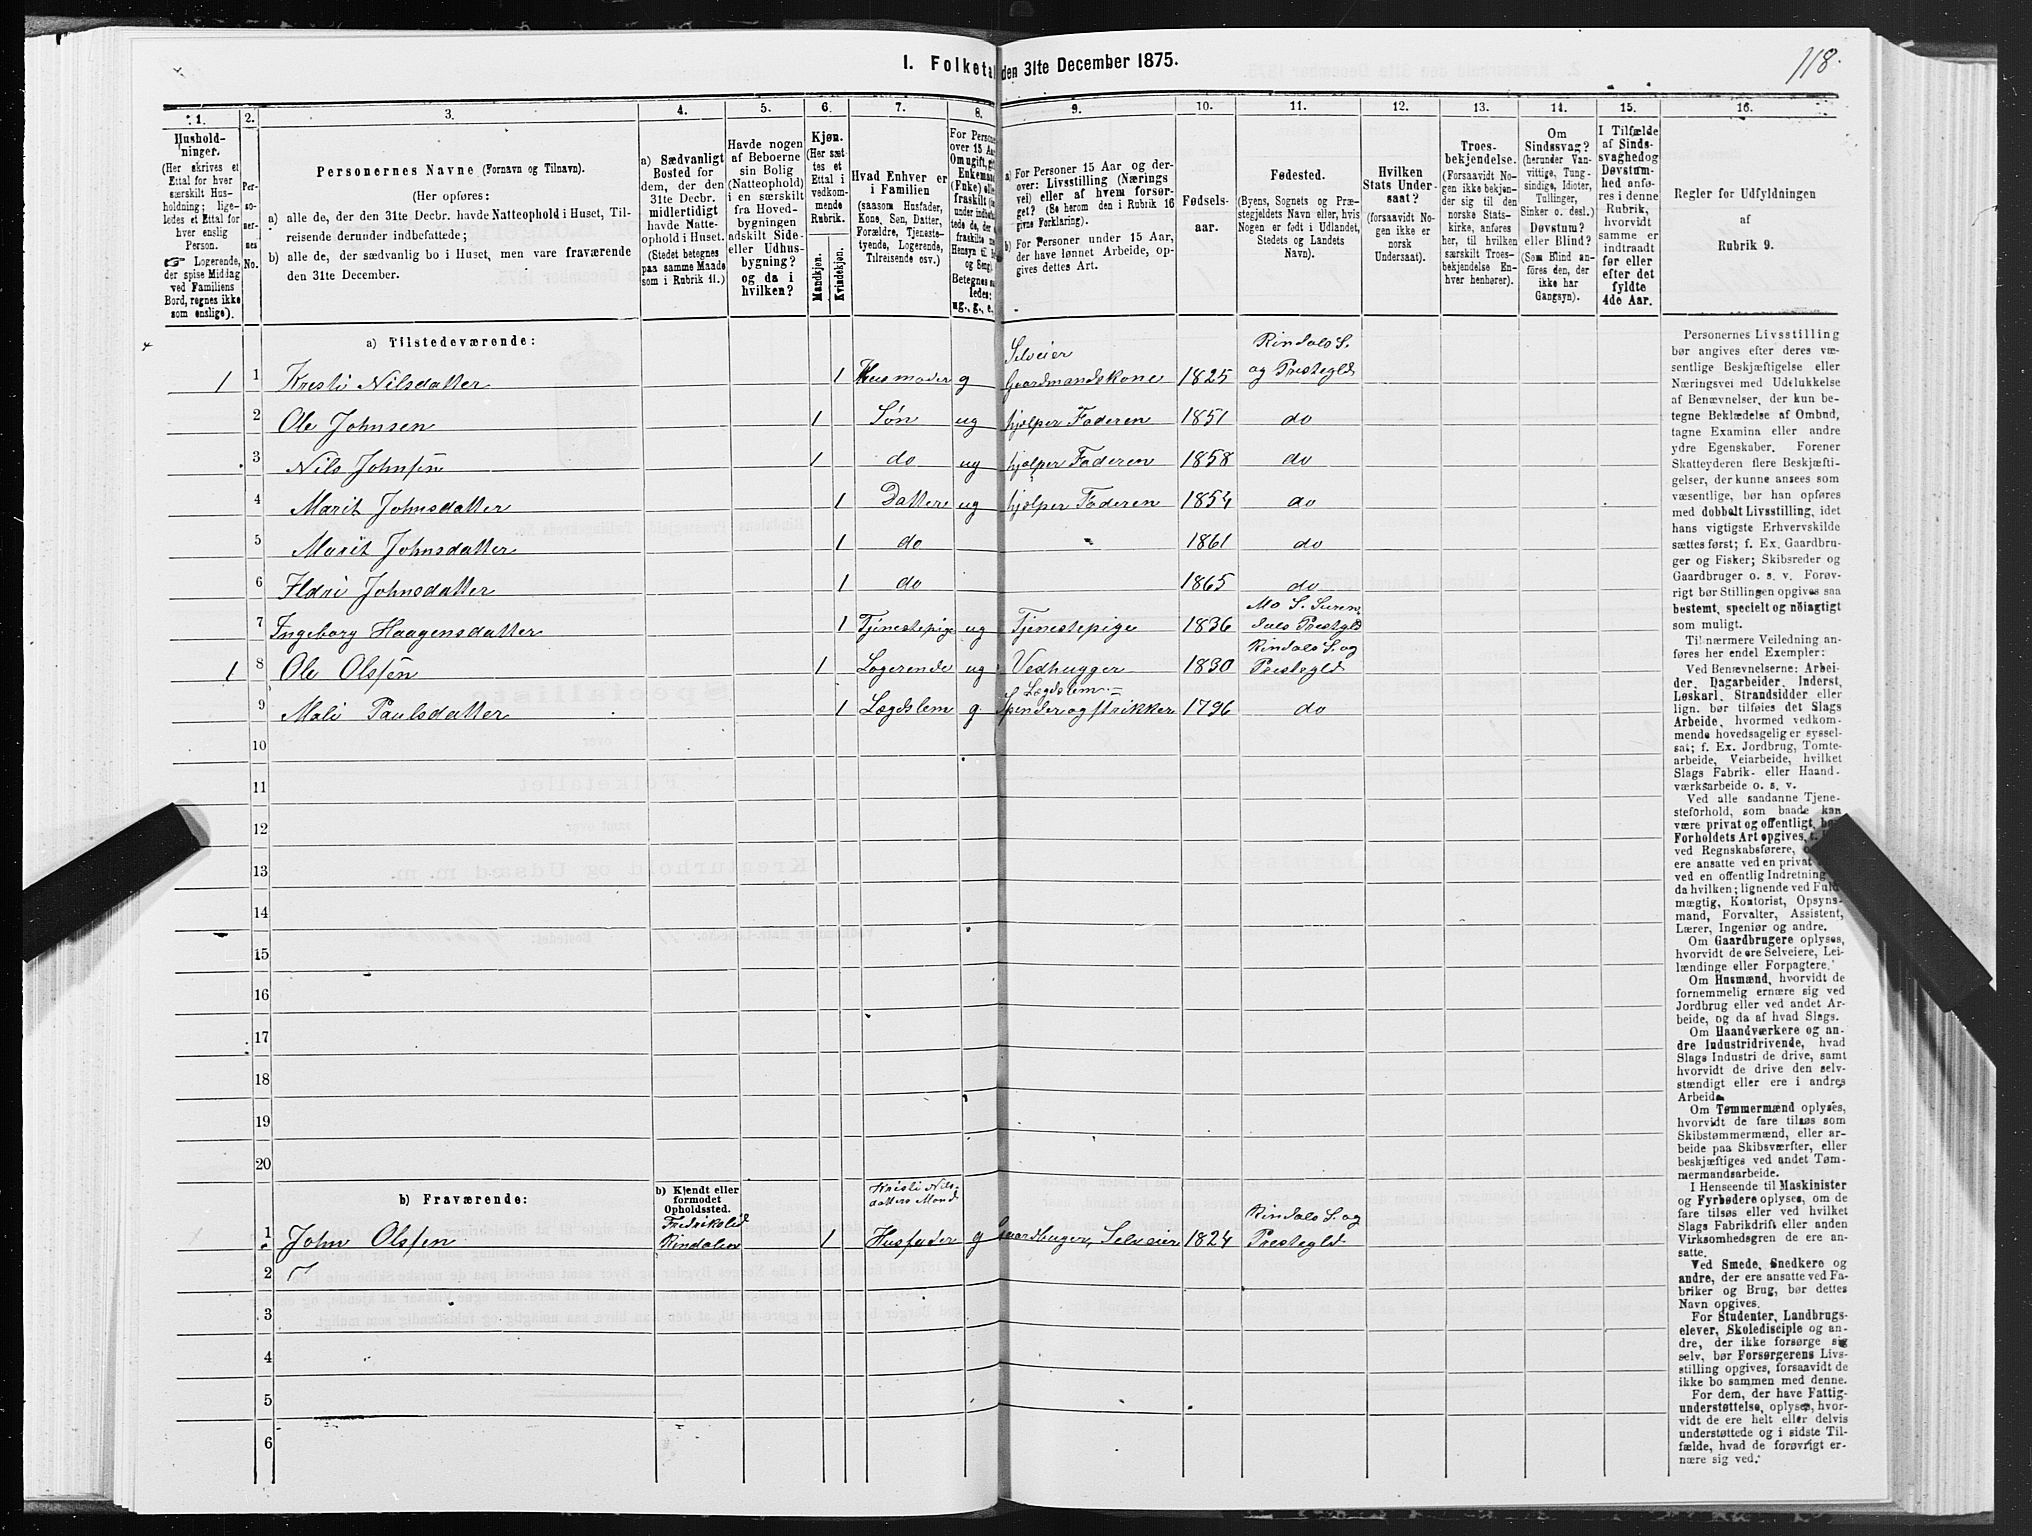 118.
1. Folketal den 31te December 1875.
1. 2. 3. 4. 5. 6. 7. 8. 9. 10. 11. 12. 13. 14. 15. 16.
Hushold-
ninger.
(Her skrives et
Ettal for hver
særskilt Hus-
holdning; lige-
ledes et Ettal for
hver enslig
Person.
☞ Logerende,
der spise Middag
ved Familiens
Bord, regnes ikke
som enslige).
Per-
so-
ner-
nes
No.
Personernes Navne (Fornavn og Tilnavn).
(Her opføres:
a) alle de, der den 31te Decbr. havde Natteophold i Huset, Til-
reisende derunder indbefattede;
b) alle de, der sædvanlig bo i Huset, men vare fraværende
den 31te December.
a) Sædvanligt
Bosted for
dem, der den
31te Decbr.
midlertidigt
havde Natte-
ophold i Huset.
(Stedet betegnes
paa samme Maade
som i Rubrik 11.)
Havde nogen
af Beboerne
sin Bolig
(Natteophold)
i en særskilt
fra Hoved-
bygningen
adskilt Side-
eller Udhus-
bygning?
og da i
hvilken?
Kjøn.
(Her sæt-
tes et
Ettal i
vedkom-
mende
Rubrik.
Mandkjøn.
Kvindekjøn.
Hvad Enhver er
i Familien
(saasom Husfader,
Kone, Søn, Datter,
Forældre, Tjeneste-
tyende, Logerende,
Tilreisende osv.)
For Persone
over 15 Aa
Om ugift, gi
Enkemand
(Enke) elle
fraskilt
under indbe
tede de, de
fraskilte
Hensyn til
og Seng).
Betegnes
ledes:
ug., g., e.
a) For Personer 15 Aar og der-
over: Livsstilling (Nærings
vei) eller af hvem forsør-
get? (Se herom den i Rubrik 16
givne Forklaring).
b) For Personer under 15 Aar,
der have lønnet Arbeide, op-
gives dettes Art.
Fødsels-
aar.
Fødested.
(Byens, Sognets og Præ-
stegjeldets Navn eller, hvis
Nogen er født i Udlandet,
Stedets og Landets
Navn).
Hvilken
Stats Under-
saat?
(forsaavidt No-
gen ikke er
norsk
Undersaat).
Troes-
bekjendelse.
(Forsaavidt No-
gen ikke bekjen-
der sig til den
norske Stats-
kirke, anføres
her, til hvilken
særskilt Troes-
bekjendelse En-
hver henhører).
Om
Sindssvag?
(herunder Van-
vittige, Tung-
sindige, Idioter,
Tullinger,
Sinker o. desl.)
Døvstum?
eller Blind?
(Som Blind an-
føres den, der
ikke har
Gangsyn).
I Tilfælde
af Sinds-
svaghed og
Døvstum-
hed anfø-
res i denne
Rubrik,
hvorvidt
samme er
indtraadt
før eller
efter det
fyldte
4de Aar.
Regler for Udfyldningen
af
Rubrik 9.
a) Tilstedeværende:
1 1 Kristi Nilsdatter 1 Husmoder g Selveier Gaardmandskone 1825 Rindals S. og Prestegld
2 Ole Johnsen 1 Søn ug hjelper Faderen 1851 do
3 Nils Johnsen 1 do ug hjelper Faderen 1858 do
4 Marit Johnsdatter 1 Datter ug hjelper Faderen 1854 do
5 Marit Johnsdatter 1 do " 1861 do
6 Ildri Johnsdatter 1 do 1865 do
7 Ingeborg Haagensdatter 1 Tjenestepige ug Tjenestepige 1836 Mo S. Suren- dals Prestgld
1 8 Ole Olsen 1 Logerende ug Vedhugger 1830 Rindals S. og Prestegld
9 Mali Paulsdatter 1 Lægdslem g Lægdslem- Spinder og strikker 1796 do
10
11
12
13
14
15
16
17
18
19
20
b) Fraværende:
b) Kjendt eller
formodet
Opholdssted.
1 John Olsen Rindalen 1 Kristi Nils- datters Mand Husfader g Gaardbruger, Selveier 1824 Rindals S. og Prestegld
2
3
4
5
6
Personernes Livsstilling
bør angives efter deres væ-
sentlige Beskjæftigelse eller
Næringsvei med Udelukkelse
af Benævnelser, der kun be-
tegne Beklædelse af Ombud,
tagne Examina eller andre
ydre Egenskaber. Forener
Skatteyderen flere Beskjæfti-
gelser, der kunne ansees som
væsentlige, bør han opføres
med dobbelt Livsstilling, idet
hans vigtigste Erhvervskilde
sættes først; f. Ex. Gaardbru-
ger og Fisker; Skibsreder og
Gaardbruger o. s. v. Forøv-
rigt bør Stillingen opgives saa
bestemt, specielt og nøiagtigt
som muligt.
Til nærmere Veiledning an-
føres her endel Exempler:
Ved Benævnelserne: Arbei-
der, Dagarbeider, Inderst,
Løskarl, Strandsidder eller
lign. bør tilføies det Slags
Arbeide, hvormed vedkom-
mende hovedsagelig er syssel-
sat; f. Ex. Jordbrug, Tomte-
arbeide, Veiarbeide, hvilket
Slags Fabrik- eller Haand-
værksarbeide o. s. v.
Ved alle saadanne Tjene-
steforhold, som baade kan
være privat og offentligt, bør
Forholdets Art opgives,
ved Regnskabsførere,
ere ansatte ved en privat
ved en offentlig Indretning
da hvilken; lignende ved Fuld
mægtig, Kontorist, Opsyns-
mand, Forvalter, Assistent,
Lærer, Ingeniør og andre.
Om Gaardbrugere oplyses,
hvorvidt de ere Selveiere, Lei-
lændinge eller Forpagtere.
Om Husmænd, hvorvidt de
fornemmelig ernære sig ved
Jordbrug eller ved andet Ar-
beide, og da af hvad Slags.
Om Haandværkere og an-
dre Industridrivende, hvad
Slags Industri de drive, samt
hvorvidt de drive den selv-
stændigt eller ere i andres
Arbeide.
Om Tømmermænd oplyses,
hvorvidt de fare tilsøs som
Skibstømmermænd, eller ar-
beide paa Skibsværfter, eller
beskjæftiges ved andet Tøm-
mermandsarbeide.
I Henseende til Maskinister
og Fyrbødere oplyses, om de
fare tilsøs eller ved hvilket
Slags Fabrikdrift eller anden
Virksomhedsgren de ere an-
satte.
Ved Smede, Snedkere og
andre, der ere ansatte ved Fa-
briker og Brug, bør dettes
Navn opgives.
For Studenter, Landbrugs-
elever, Skoledisciple og an-
dre, der ikke forsørge sig
selv, bør Forsørgerens Livs-
stilling opgives, forsaavidt de
ikke bo sammen med denne.
For dem, der have Fattig-
understøttelse, oplyses, hvor-
vidt de ere helt eller delvis
understøttede og i sidste Til-
fælde, hvad de forøvrigt er-
nære sig ved.